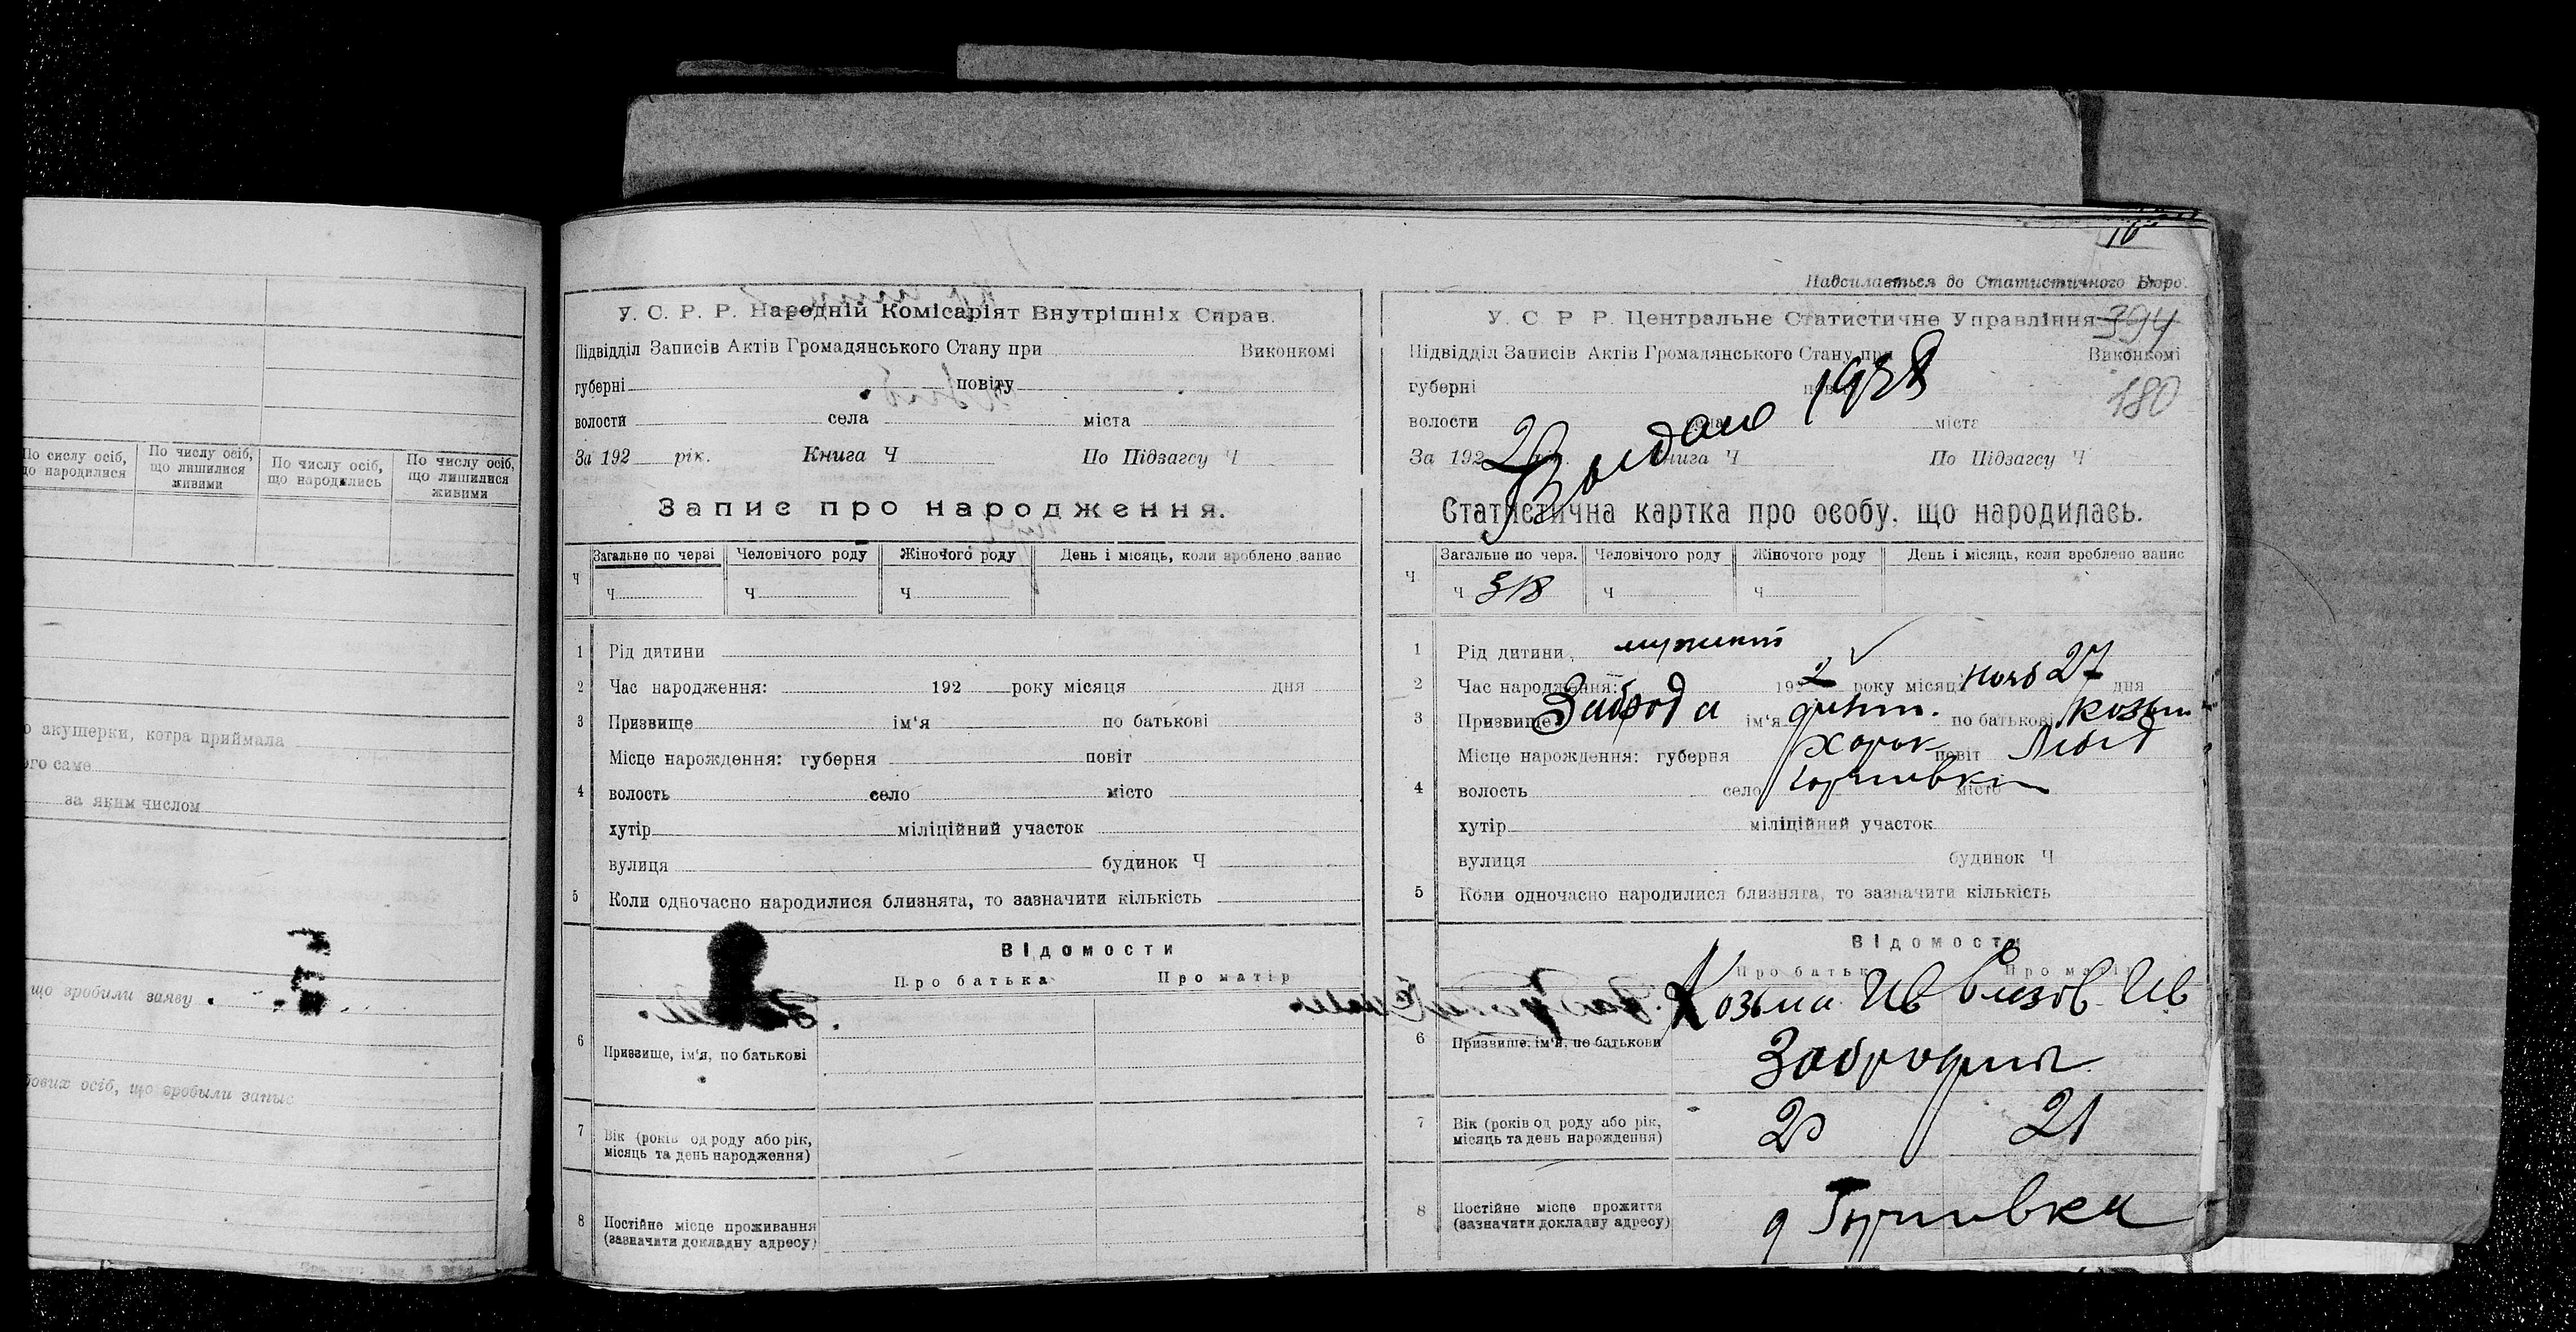 По сислу осіб, що народилися
По числу осіб, що лишилися живими
По числу осіб, що народились
По числу осіб, що лишилися живими
акушерки, котра приймала
ого саме
за яким числом
що зробили заяву
осіб, що зробыли запис
У. С. Р. Р. Народній Комісаріят Внутрішніх Справ.
Підвідділ Записів Актів Громадянського Стану при Виконкомі
губерні повіту
волости села міста
За 192 рік. Книга Ч По Підзагсу Ч
Запис про народження.
Ч Загальне по черзі Человічого роду Жіночого роду День і місяць, коли зроблено запис
Ч Ч Ч
1 Рід дитини
2 Час народження: 192 року місяця дня
3 Призвище ім'я по батькові
Місце народження: губерня повіт
4 волость село місто
хутір міліційний участок
вулиця будинок Ч
5 Коли одночасно народилися близнята, то зазначити кількість
Відомости
Про батька Про матір
6 Призвище, ім'я, по батькові
7 Вік (років од роду або рік, місяць та день народження)
8 Постійне місце проживання (зазначити докладну адресу)
16
Надсилається до Статистичного Бюро.
У. С. Р. Р. Центральне Статистичне Управління 394
Підвідділ Записів Актів Громадянського Стану при Виконкомі
губерні 1938 180
волости міста
За 192 Книга Ч По Підзагсу Ч
Статистична картка про особу, що народилась.
Ч Загальне по черз. Человічого роду Жіночого роду День і місяць, коли зроблено запис
Ч 318 Ч Ч
1 Рід дитини
2 Час народження: 192 2 року місяця нояб 27 дня
3 Призвище Заброда ім'я по батькові Козьм
Місце нарождення: губерня Харьк повіт
4 волость село місто
хутір міліційний участок
вулиця будинок Ч
5 Коли одночасно народилися близнята, то зазначити кількість
Відомости
Про батька Про матір
Козьма Ив Ив
6 Призвище, ім'я, по батькови
Забродин
7 Вік (років од роду або рік, місяць та день нарождення) 20 21
8 Постійне місце прожиття (зазначити докладну адресу)